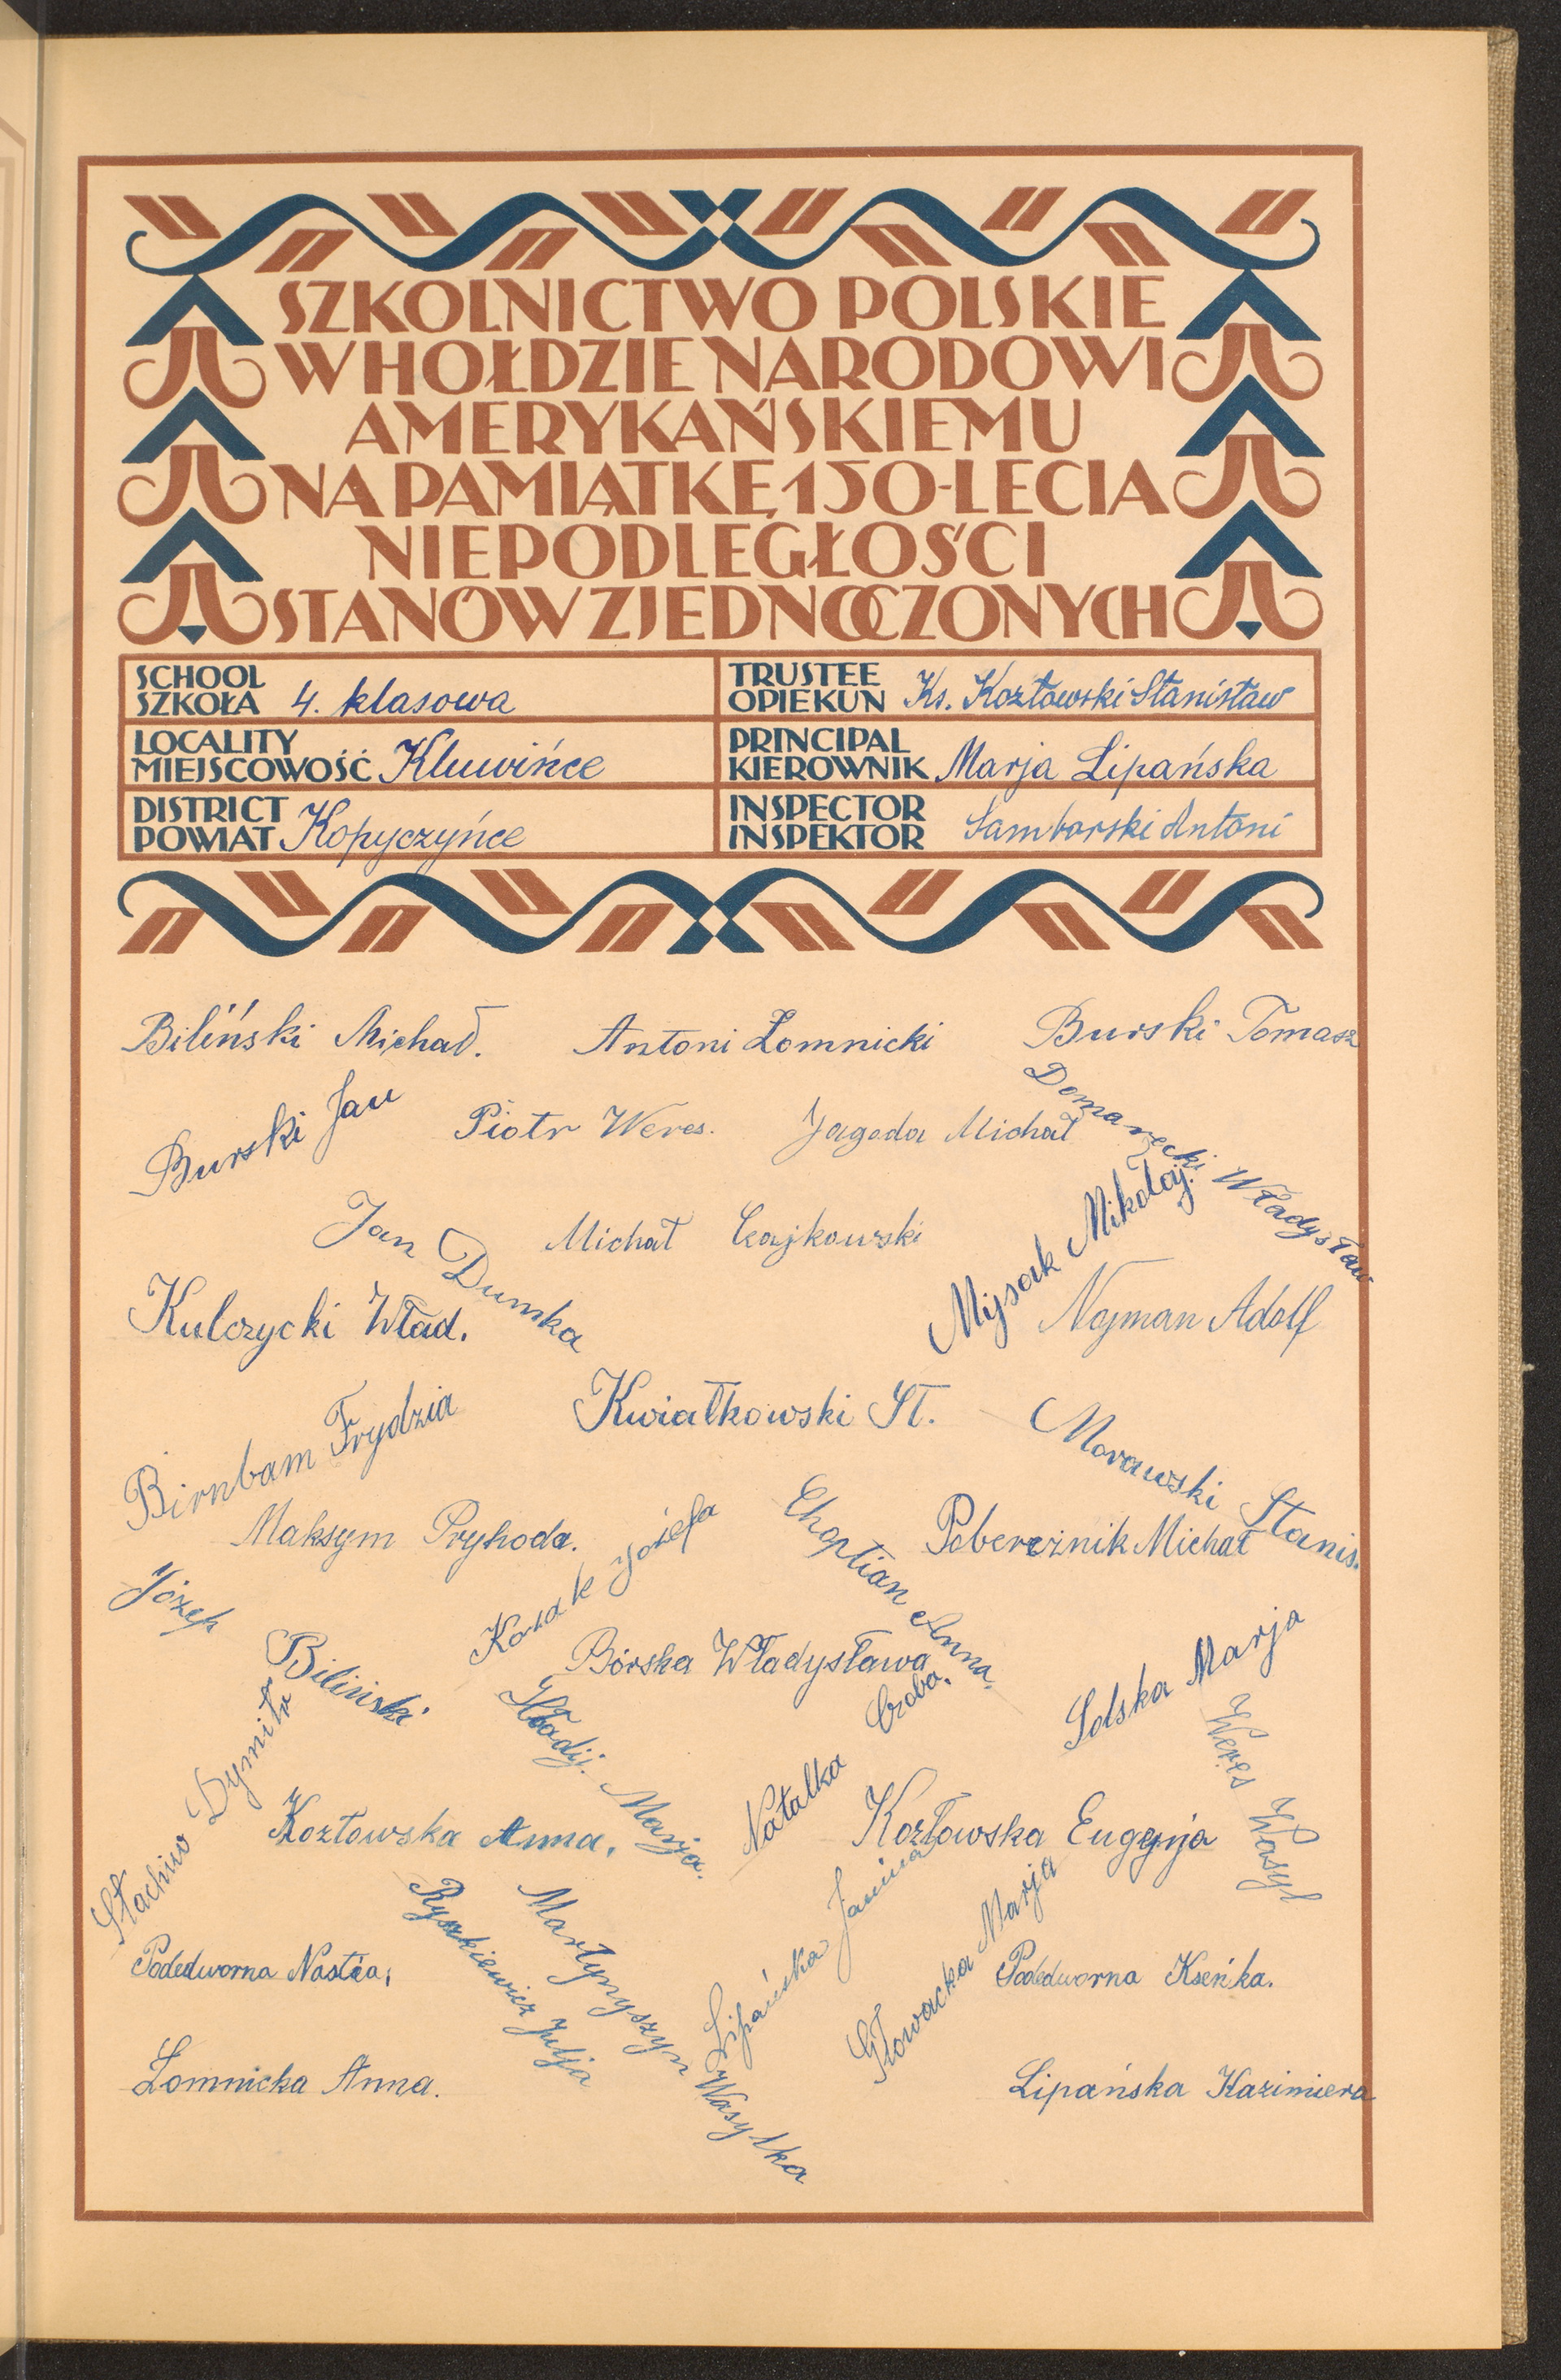 SZKOLNICTWO POLSKIE
W HOŁDZIE NARODOWI
AMERYKAŃSKIEMU
NA PAMIĄTKĘ 150-LECIA
NIEPODLEGŁOŚCI
STANÓW ZJEDNOCZONYCH
SCHOOL
SZKOŁA 4. klasowa
TRUSTEE
OPIEKUN Ks. Kozłowski Stanisław
LOCALITY
MIEJSCOWOŚĆ Kluwińce
PRINCIPAL
KIEROWNIK Marja Lipańska
DISTRICT
POWIAT Kopyczyńce
INSPECTOR
INSPEKTOR Samborski Antoni
Biliński Michał.
Antoni Łomnicki
Burski Tomasz
Burski Jan
Piotr Weres.
Jagoda Michał
Domarecki Władysław
Jan Dumka
Michał Czajkowski
Mysak Mikołaj.
Kulczycki Wład.
Najman Adolf
Birnbam Frydzia
Kwiatkowski St.
Morawski Stanis.
Maksym Pryhoda.
Kozak Józefa
Choptian Anna.
Pobereżnik Michał
Józef Biliński
Bórska Władysława
Solska Marja
Stachiw Dymitr
Marja.
Natalka
Weres Wasyl
Kozłowska Anna.
Kozłowska Eugenja
Ryszkiewicz Julja
Martynyszyn Wasylka
Lipańska Janina
Głowacka Marja
Podedworna Nastia,
Podedworna Kseńka.
Łomnicka Anna.
Lipańska Kazimiera